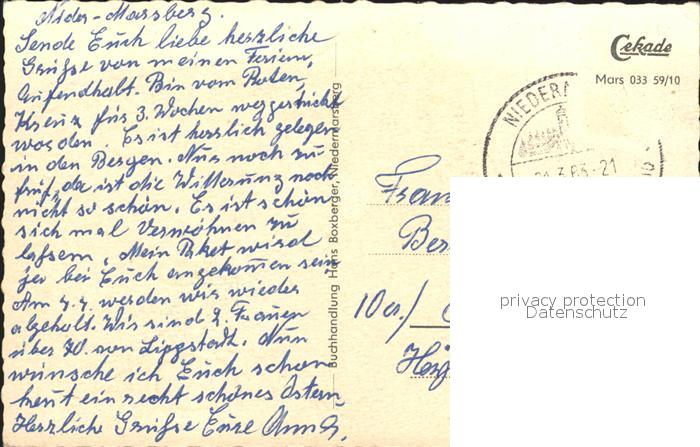 Nider-Marsberg.
Sende Euch liebe herzliche
Grüße von meinen Ferien,
Aufendhalt. Bin vom Roten,
Kreuz für 3. Wochen weggeschickt
worden. Es ist herrlich gelegen
in den Bergen. Nur noch zu
früf, da ist die Witterung noch
nicht so schön. Es ist schön
sich mal Verwöhnen zu
lassen. Mein Paket wird
ja bei Euch angekommen sein
Am 4.4. werden wir wieder
abgeholt. Wir sind 2. Frauen
über 70. von Lippstadt. Nun
wünsche ich Euch schon
heut ein recht schönes Ostern
Herzliche Grüße Eure
Buchhandlung Hans Boxberger, Niedermarsberg
Cekade
Mars 033 59/10
NIEDERM
21
Frau
Ber
10a/
privacy protection
Datenschutz